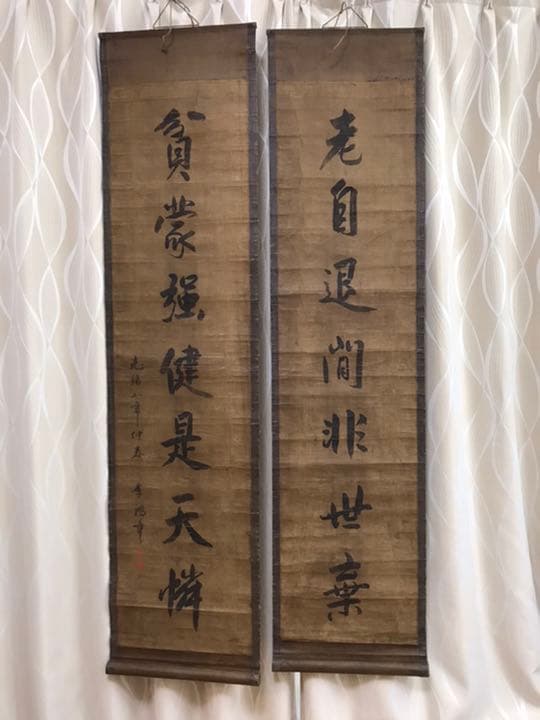 老自退閒非世棄
貧蒙強健是天憐
光緒二年仲春 李鴻章